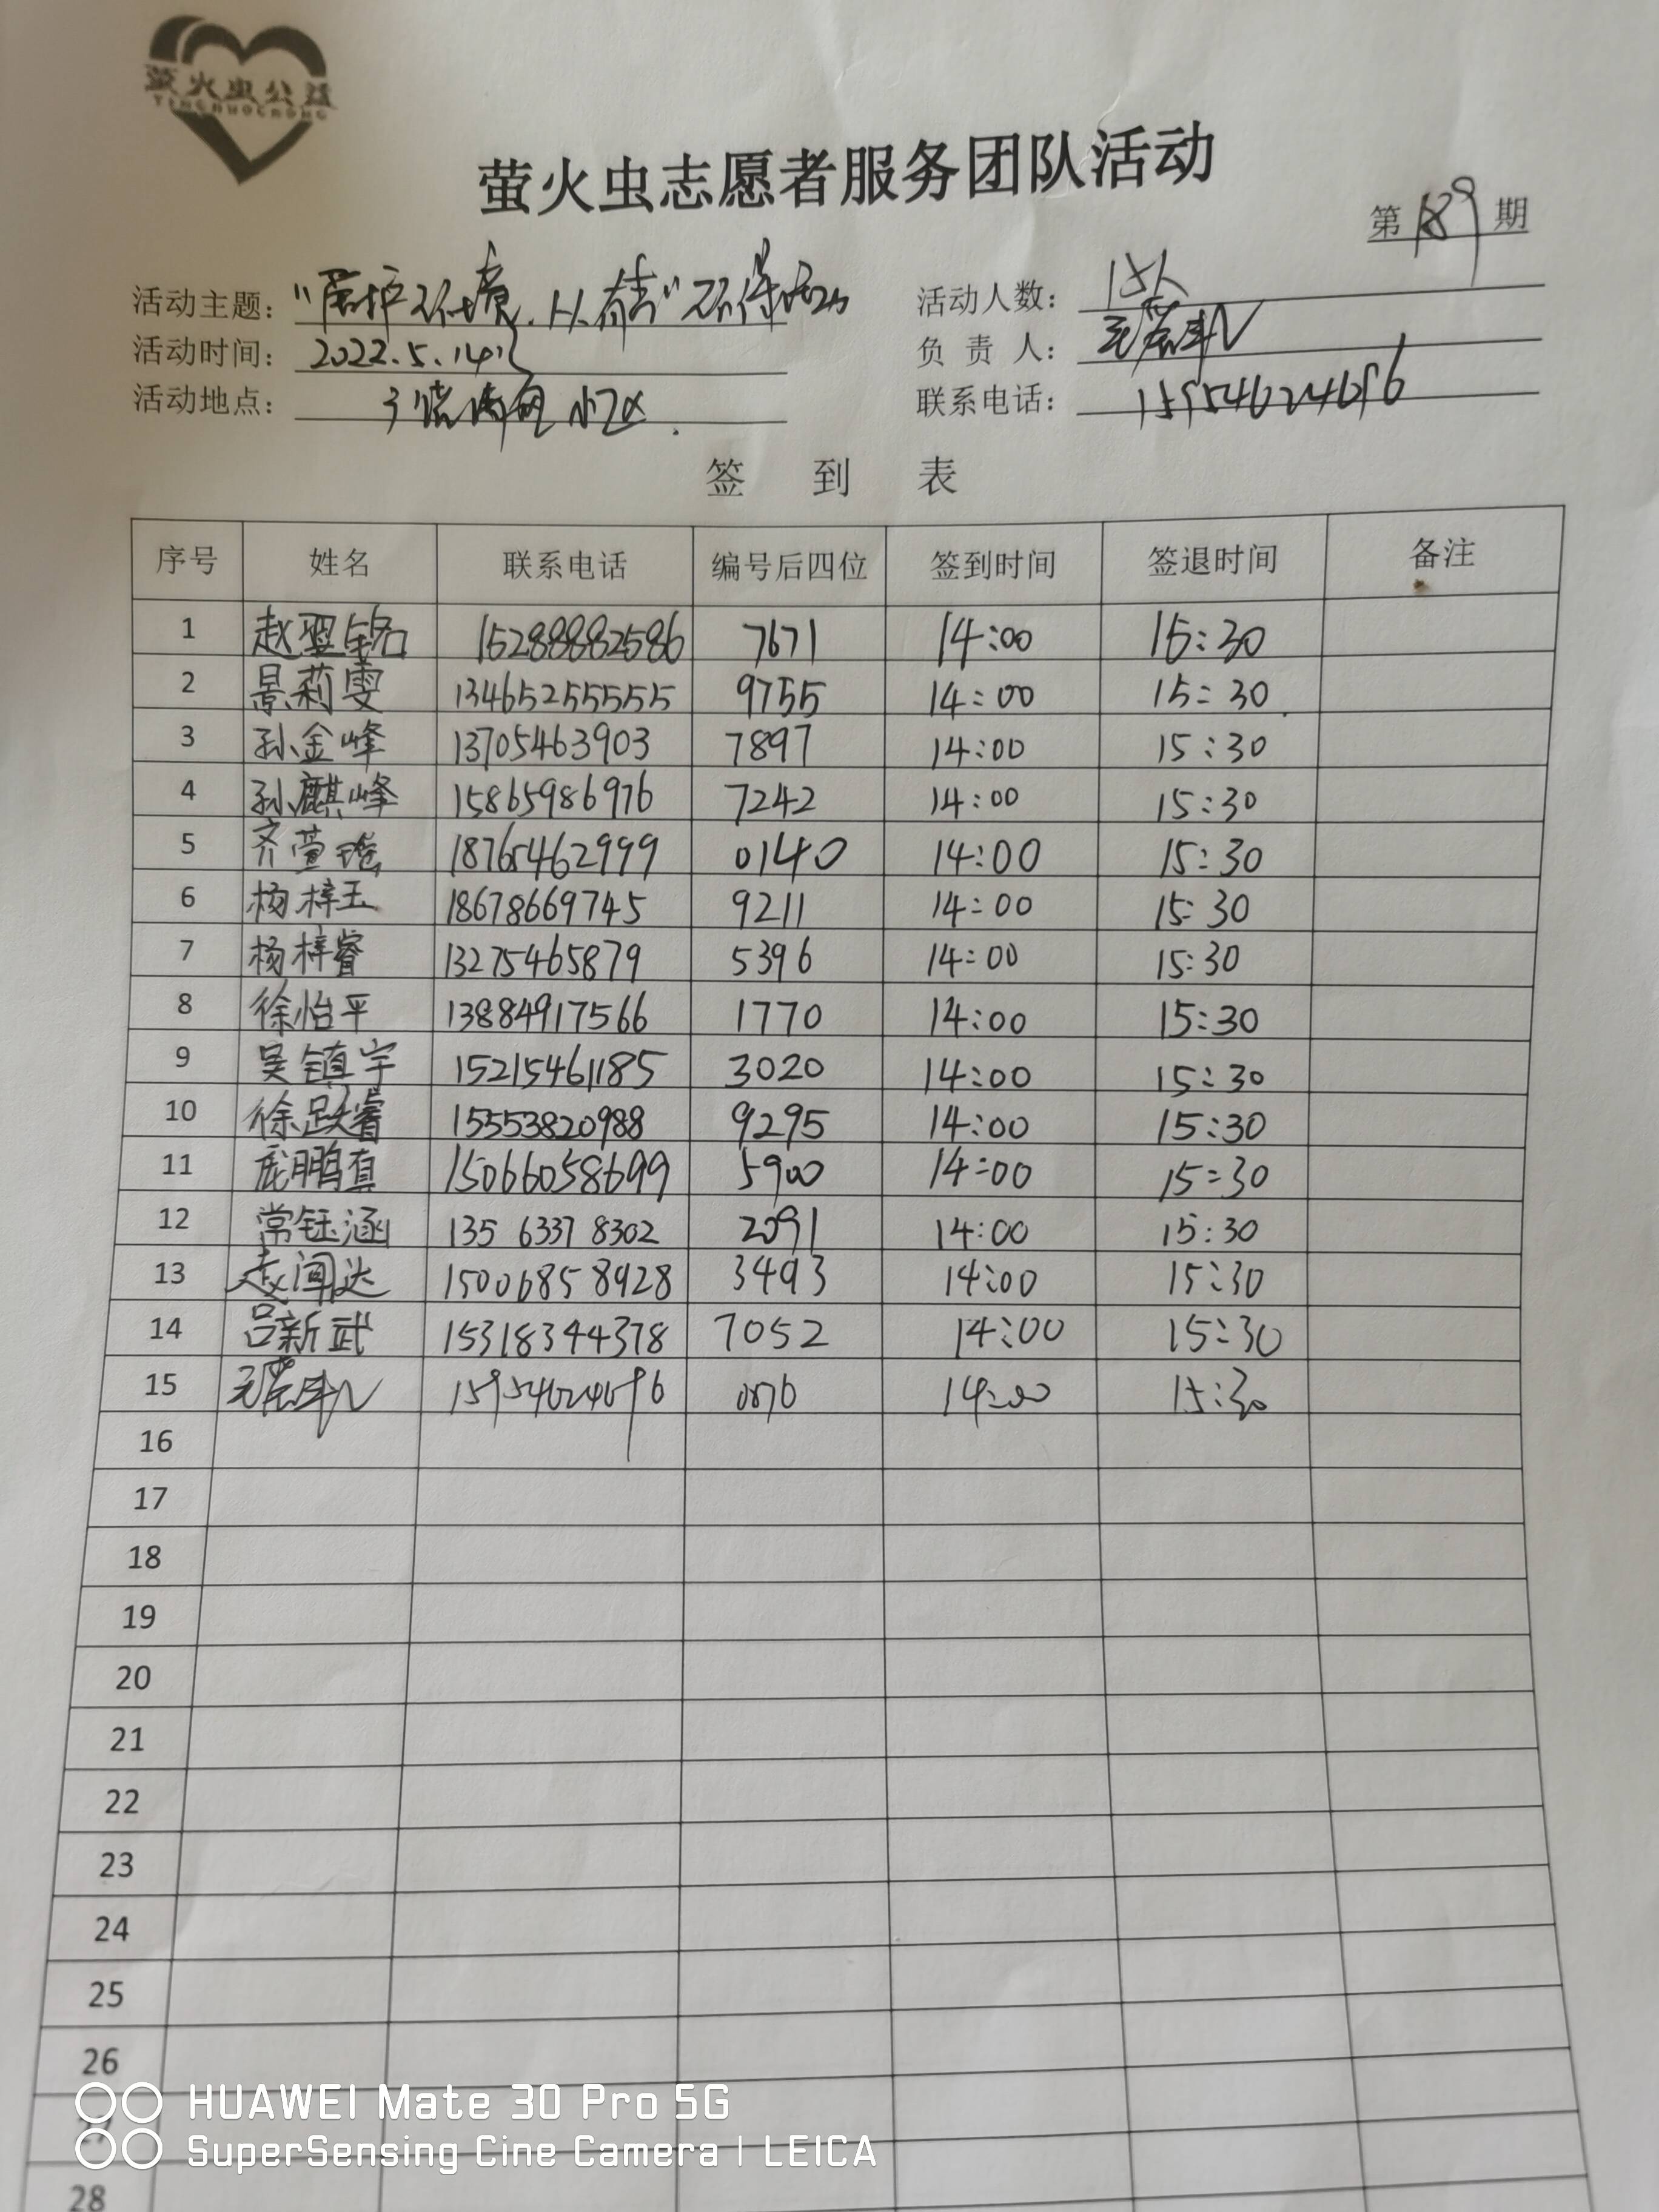 萤火虫公益
YINGHUOCHONG
萤火虫志愿者服务团队活动
第189期
活动主题：环境，从有 环保活动
活动人数：15人
活动时间：2022.5.14
负责人：
活动地点：小区
联系电话：15954624696
签到表
序号 姓名 联系电话 编号后四位 签到时间 签退时间 备注
1 赵翌铭 15288882586 7671 14:00 15:30
2 景莉雯 13465255555 9755 14:00 15:30
3 孙金峰 13705463903 7897 14:00 15:30
4 孙麒峰 15865986976 7242 14:00 15:30
5 齐萱瑶 18765462999 0140 14:00 15:30
6 杨梓玉 18678669745 9211 14:00 15:30
7 杨梓睿 13275465879 5396 14:00 15:30
8 徐怡平 13884917566 1770 14:00 15:30
9 吴镇宇 15215461185 3020 14:00 15:30
10 徐跃睿 15553820988 9295 14:00 15:30
11 庞鹏真 15066058699 5900 14:00 15:30
12 常钰涵 135 6337 8302 2091 14:00 15:30
13 赵闻达 15006858928 3493 14:00 15:30
14 吕新武 15318344378 7052 14:00 15:30
15 15954624696 0876 14:00 15:30
16
17
18
19
20
21
22
23
24
25
26
27
28
HUAWEI Mate 30 Pro 5G
SuperSensing Cine Camera | LEICA